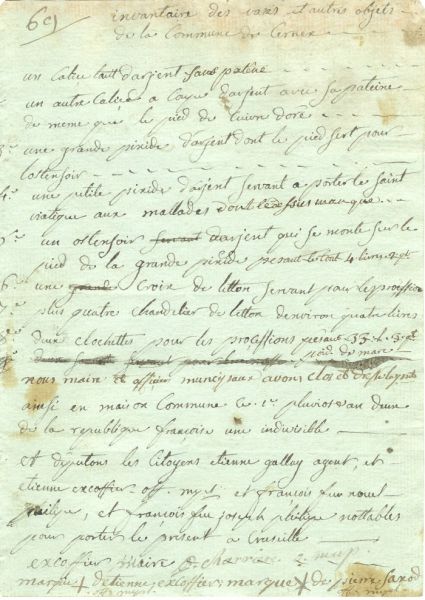 69
inventaire des vases et autres objets
de la Commune de Cernex
un Calice tout d'argent sans patène
un autre Calice a Coupe d'argent avec sa pateine
de meme que le pied de cuivre doré
3.° une grande pixide d'argent dont le pied sert pour
l'ostensoir
4.° une petite pixide d'argent servant a porter le saint
viatique aux mallades dont le dessus manque
5.° un ostensoir servant d'argent qui se monte sur le
pied de la grande pixide pesant le tout 4 livres
6.° une grande Croix de letton servant pour les processions
plus quatre chandelier de letton d'environ quatre livres
deux clochettes pour les professions pesant 33
poid de marc
nous maire et officiers municipaux avons clos
ainsi en maison Commune ce 1.er pluviose an deux
de la republique françoise une indivisible
et députons les Citoyens etienne gallay agent, et
etienne excoffier off. m.pl et françois feu
et françois feu joseph philipe nottables
pour porter le présent à Cruseille
excoffier maire Charrière
marque + d'etienne excoffier marque + de pierre favod
off. mupl. off. mupl.